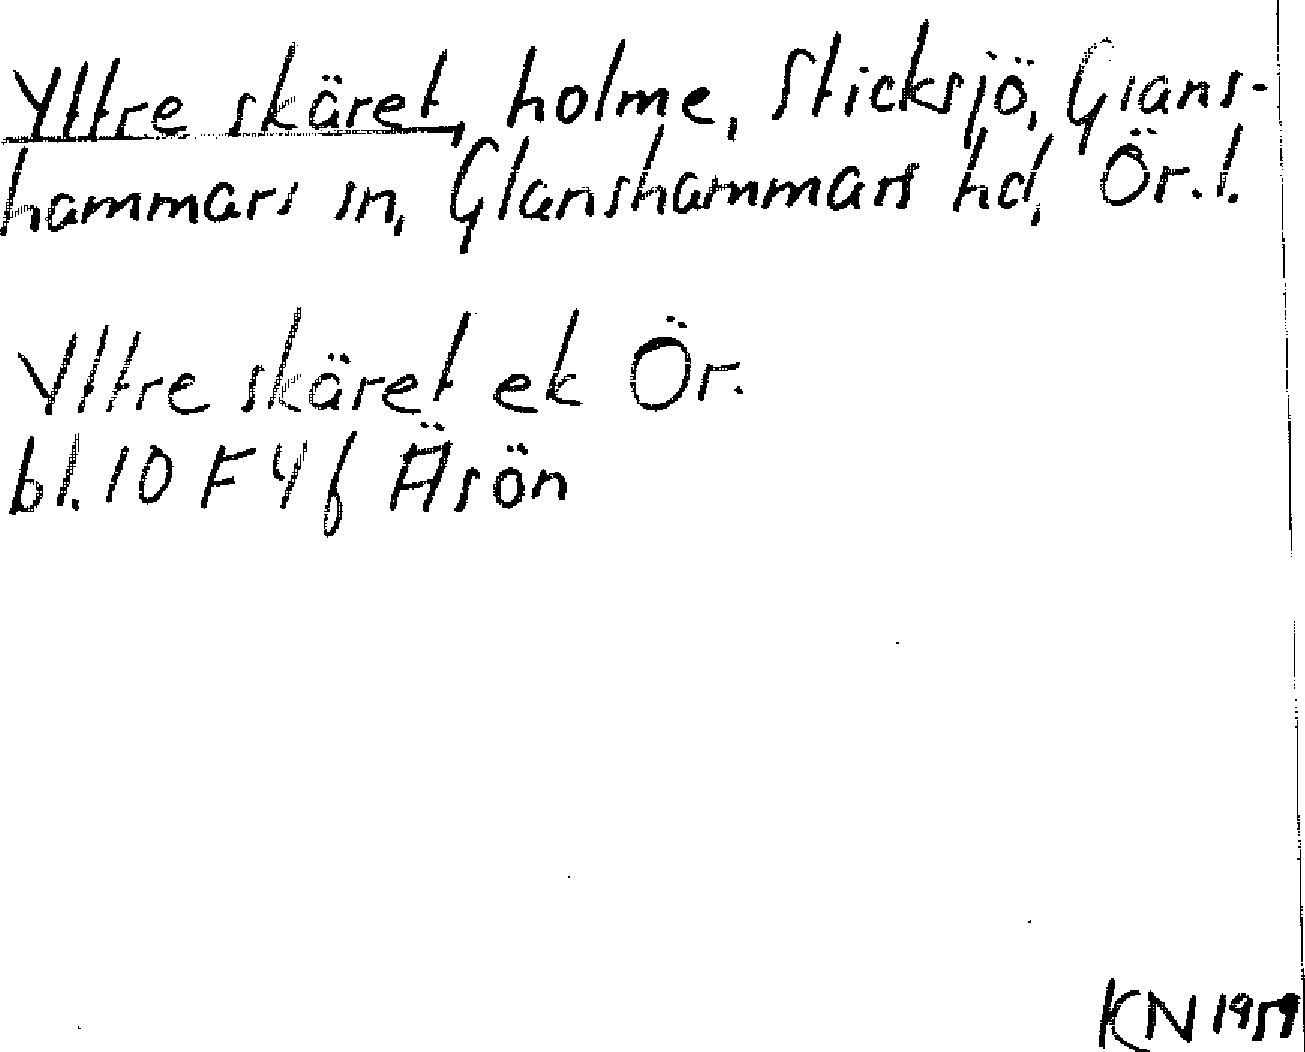 Yttre skäret, holme, Sticksjö, Glans-
hammars sn, Glanshammars hd, Ör. l.
Yttre skäret ek Ör.
bl. 10 F 4 f Äsön
KN 1959